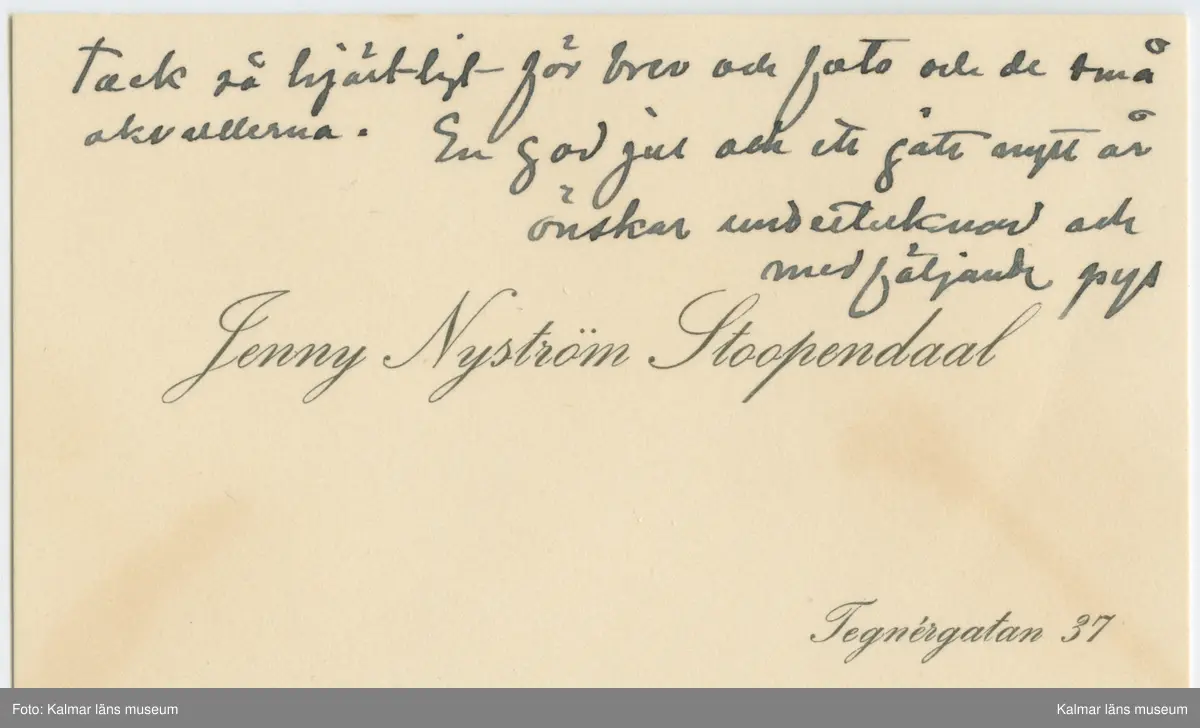 Tack så hjärtligt för brev och foto och de små
akvallerna. En god jul och ett gått nytt år
önskar undertecknad och
medföljande pys
Jenny Nyström Stoopendaal
Tegnérgatan 37
Foto: Kalmar läns museum
Kalmar läns museum